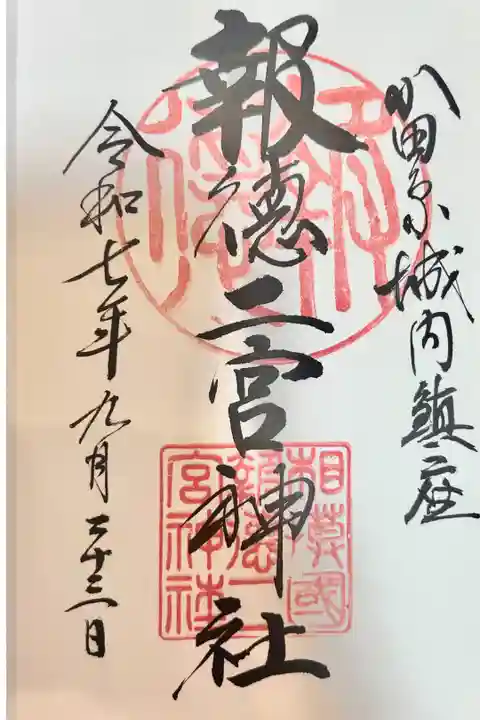 小田原城内鎮座
報徳二宮神社
令和七年九月二十三日
相模國
報徳二
宮神社